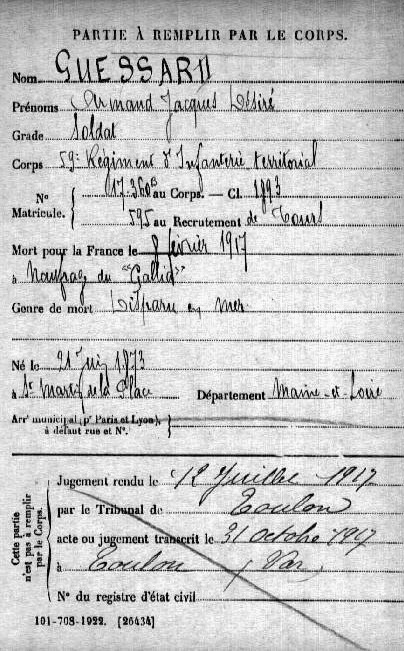 PARTIE À REMPLIR PAR LE CORPS.
Nom GUESSARD
Prénoms Armand Jacques Désiré
Grade Soldat
Corps 59e Régiment d'Infanterie territorial
No 17.360B au Corps. — Cl. 1893
Matricule. 595 au Recrutement de Tours
Mort pour la France le février 1917
à Naufrag du "Gallia"
Genre de mort Disparu en mer
Né le 21 Juin 1873
à St Martin de la Place Département Maine-et-Loire
Arrt municipal (pr Paris et Lyon),
à défaut rue et No.
Cette partie
n'est pas à remplir
par le Corps.
Jugement rendu le 12 Juillet 1917
par le Tribunal de Toulon
acte ou jugement transcrit le 31 octobre 1917
à Toulon (Var)
No du registre d'état civil
101-708-1922. [26434]